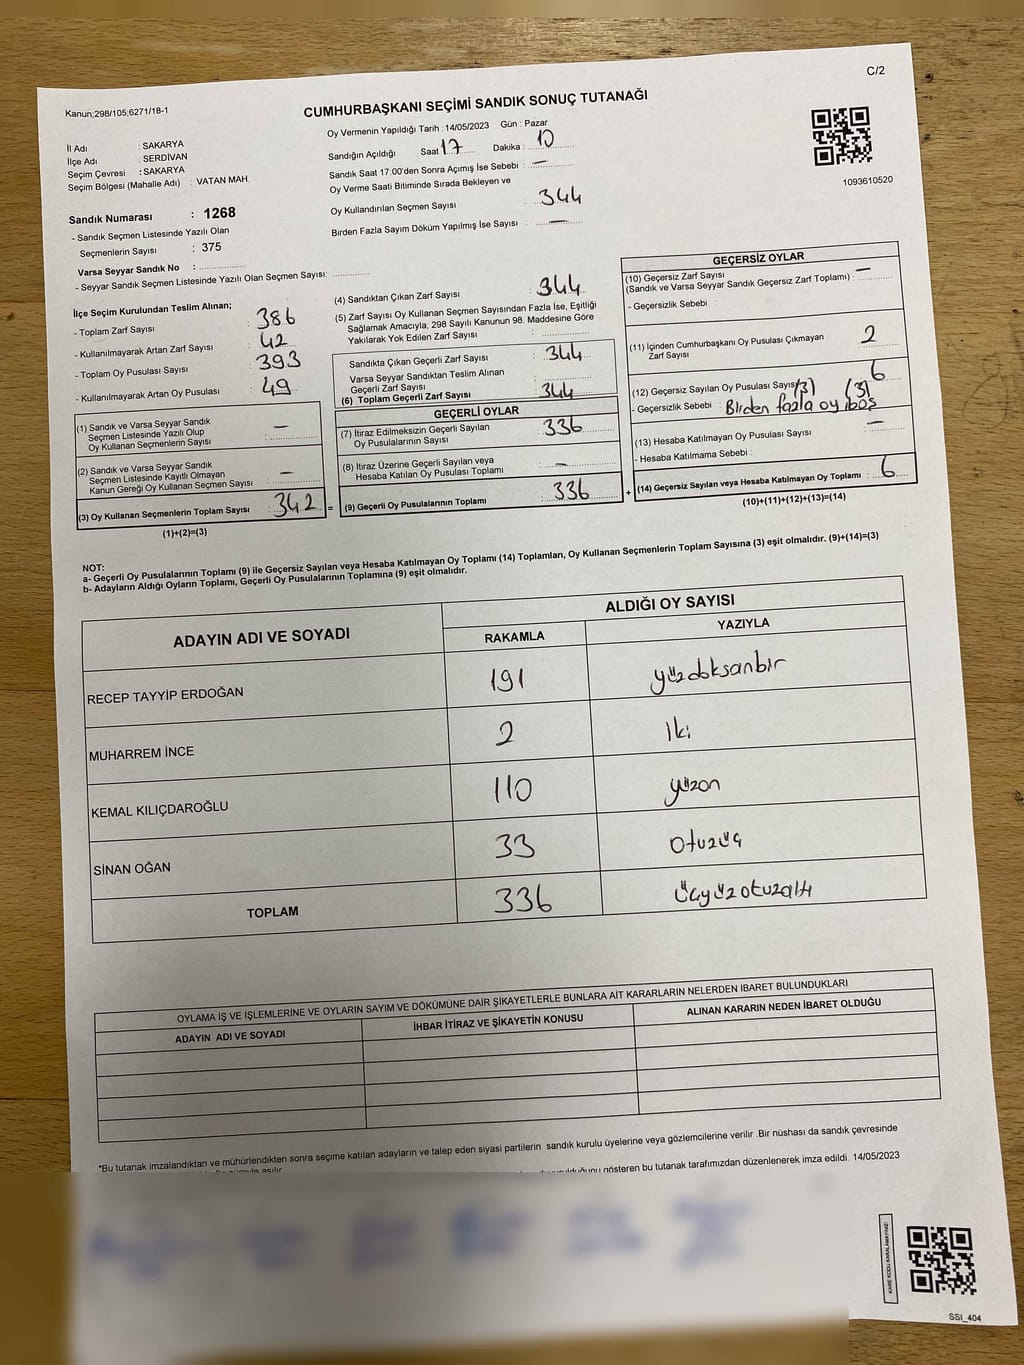 C/2
Kanun;298/105;6271/18-1
CUMHURBAŞKANI SEÇİMİ SANDIK SONUÇ TUTANAĞI
Oy Vermenin Yapıldığı Tarih : 14/05/2023 Gün : Pazar
İl Adı : SAKARYA
İlçe Adı : SERDİVAN
Seçim Çevresi : SAKARYA
Seçim Bölgesi (Mahalle Adı) : VATAN MAH.
Sandığın Açıldığı Saat 17 Dakika : 10
Sandık Saat 17:00'den Sonra Açımış İse Sebebi : —
Oy Verme Saati Bitiminde Sırada Bekleyen ve
Oy Kullandırılan Seçmen Sayısı : 344
Birden Fazla Sayım Döküm Yapılmış İse Sayısı : —
1093610520
Sandık Numarası : 1268
- Sandık Seçmen Listesinde Yazılı Olan
Seçmenlerin Sayısı : 375
Varsa Seyyar Sandık No :
- Seyyar Sandık Seçmen Listesinde Yazılı Olan Seçmen Sayısı:
İlçe Seçim Kurulundan Teslim Alınan;
- Toplam Zarf Sayısı : 386
- Kullanılmayarak Artan Zarf Sayısı : 42
- Toplam Oy Pusulası Sayısı : 393
- Kullanılmayarak Artan Oy Pusulası : 49
(1) Sandık ve Varsa Seyyar Sandık
Seçmen Listesinde Yazılı Olup
Oy Kullanan Seçmenlerin Sayısı : —
(2) Sandık ve Varsa Seyyar Sandık
Seçmen Listesinde Kayıtlı Olmayan
Kanun Gereği Oy Kullanan Seçmen Sayısı : —
(3) Oy Kullanan Seçmenlerin Toplam Sayısı : 342 =
(1)+(2)=(3)
(4) Sandıktan Çıkan Zarf Sayısı : 344
(5) Zarf Sayısı Oy Kullanan Seçmen Sayısından Fazla İse, Eşitliği
Sağlamak Amacıyla; 298 Sayılı Kanunun 98. Maddesine Göre
Yakılarak Yok Edilen Zarf Sayısı :
Sandıkta Çıkan Geçerli Zarf Sayısı : 344
Varsa Seyyar Sandıktan Teslim Alınan
Geçerli Zarf Sayısı :
(6) Toplam Geçerli Zarf Sayısı : 344
GEÇERLİ OYLAR
(7) İtiraz Edilmeksizin Geçerli Sayılan
Oy Pusulalarının Sayısı : 336
(8) İtiraz Üzerine Geçerli Sayılan veya
Hesaba Katılan Oy Pusulası Toplamı : —
(9) Geçerli Oy Pusulalarının Toplamı : 336 +
GEÇERSİZ OYLAR
(10) Geçersiz Zarf Sayısı
(Sandık ve Varsa Seyyar Sandık Geçersiz Zarf Toplamı) : —
- Geçersizlik Sebebi :
(11) İçinden Cumhurbaşkanı Oy Pusulası Çıkmayan
Zarf Sayısı : 2
(12) Geçersiz Sayılan Oy Pusulası Sayısı : 6
(3) (3)
- Geçersizlik Sebebi : Birden fazla oy boş
(13) Hesaba Katılmayan Oy Pusulası Sayısı : —
- Hesaba Katılmama Sebebi :
(14) Geçersiz Sayılan veya Hesaba Katılmayan Oy Toplamı : 6
(10)+(11)+(12)+(13)=(14)
NOT:
a- Geçerli Oy Pusulalarının Toplamı (9) ile Geçersiz Sayılan veya Hesaba Katılmayan Oy Toplamı (14) Toplamları, Oy Kullanan Seçmenlerin Toplam Sayısına (3) eşit olmalıdır. (9)+(14)=(3)
b- Adayların Aldığı Oyların Toplamı, Geçerli Oy Pusulalarının Toplamına (9) eşit olmalıdır.
ADAYIN ADI VE SOYADI
ALDIĞI OY SAYISI
RAKAMLA YAZIYLA
RECEP TAYYİP ERDOĞAN 191 yüzdoksanbir
MUHARREM İNCE 2 iki
KEMAL KILIÇDAROĞLU 110 yüzon
SİNAN OĞAN 33 otuzüç
TOPLAM 336 üçyüzotuzaltı
OYLAMA İŞ VE İŞLEMLERİNE VE OYLARIN SAYIM VE DÖKÜMÜNE DAİR ŞİKAYETLERLE BUNLARA AİT KARARLARIN NELERDEN İBARET BULUNDUKLARI
ADAYIN ADI VE SOYADI İHBAR İTİRAZ VE ŞİKAYETİN KONUSU ALINAN KARARIN NEDEN İBARET OLDUĞU
*Bu tutanak imzalandıktan ve mühürlendikten sonra seçime katılan adayların ve talep eden siyasi partilerin sandık kurulu üyelerine veya gözlemcilerine verilir .Bir nüshası da sandık çevresinde
gösteren bu tutanak tarafımızdan düzenlenerek imza edildi. 14/05/2023
KARE KODU KARALAMAYINIZ!
SSI_404